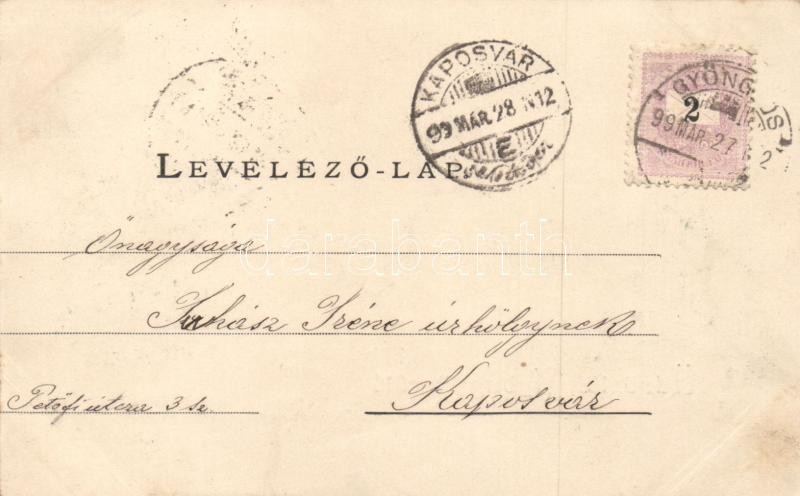 KAPOSVÁR
99 MÁR. 28 N12
E
2
GYÖNGYÖS
99 MÁR. 27
LEVELEZŐ-LAP
darabanth
Önagysága
Juhász Iréne úrhölgynek
Petőfi útcza 3 sz.
Kaposvár